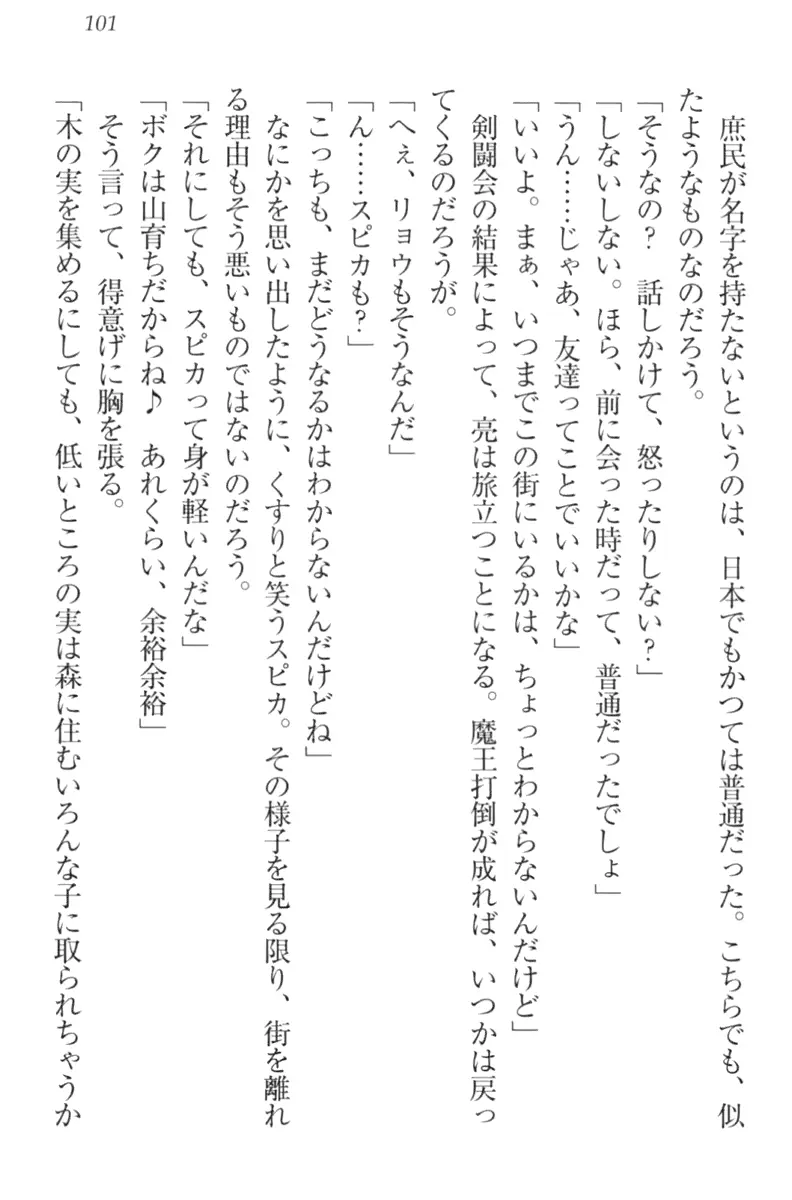 101
庶民が名字を持たないというのは、日本でもかつては普通だった。こちらでも、似
たようなものなのだろう。
「そうなの？　話しかけて、怒ったりしない？」
「しないしない。ほら、前に会った時だって、普通だったでしょ」
「うん……じゃあ、友達ってことでいいかな」
「いいよ。まぁ、いつまでこの街にいるかは、ちょっとわからないんだけど」
剣闘会の結果によって、亮は旅立つことになる。魔王打倒が成れば、いつかは戻っ
てくるのだろうが。
「へぇ、リョウもそうなんだ」
「ん……スピカも？」
「こっちも、まだどうなるかはわからないんだけどね」
なにかを思い出したように、くすりと笑うスピカ。その様子を見る限り、街を離れ
る理由もそう悪いものではないのだろう。
「それにしても、スピカって身が軽いんだな」
「ボクは山育ちだからね♪　あれくらい、余裕余裕」
そう言って、得意げに胸を張る。
「木の実を集めるにしても、低いところの実は森に住むいろんな子に取られちゃうか